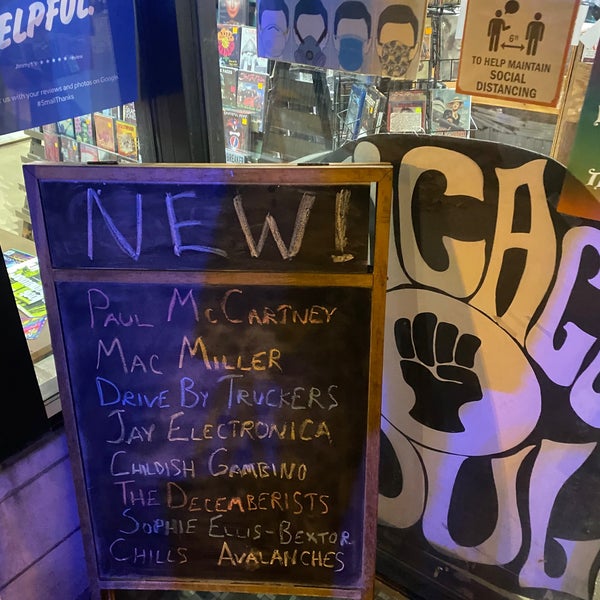 ELPFUL.
Jimmy K's ★★★★★ review
us with your reviews and photos on Google
#SmallThanks
6ft
TO HELP MAINTAIN
SOCIAL
DISTANCING
NEW!
PAUL MCCARTNEY
MAC MILLER
DRIVE BY TRUCKERS
JAY ELECTRONICA
CHILDISH GAMBINO
THE DECEMBERISTS
SOPHIE ELLIS-BEXTOR
CHILLS AVALANCHES
ICAGO
OUL